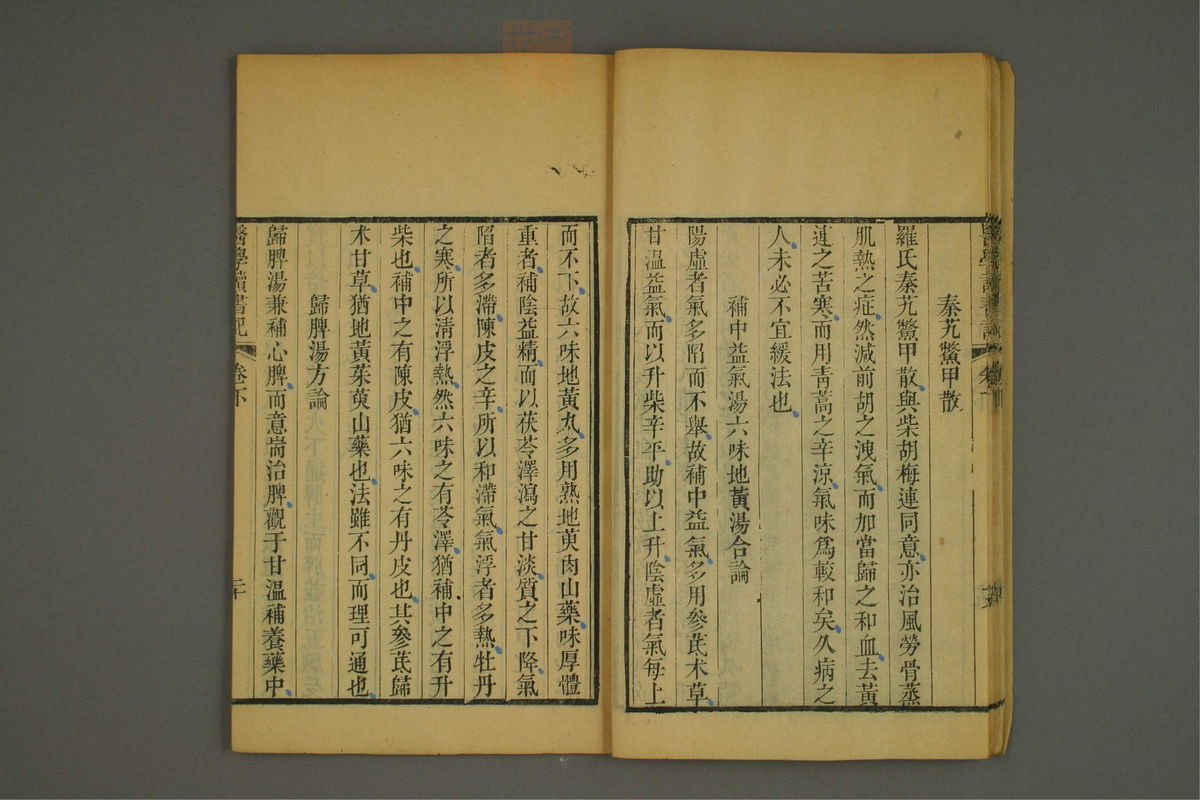 秦艽鱉甲散
羅氏秦艽鱉甲散與柴胡梅連同意亦治風勞骨蒸
肌熱之症然減前胡之洩氣而加當歸之和血去黃
連之苦寒而用青蒿之辛涼氣味爲較和矣久病之
人未必不宜緩法也
補中益氣湯六味地黃湯合論
陽虛者氣多陷而不舉故補中益氣多用參芪术草
甘溫益氣而以升柴辛平助以上升陰虛者氣每上
而不下故六味地黃丸多用熟地萸肉山藥味厚體
重者補陰益精而以茯苓澤瀉之甘淡質之下降氣
陷者多滯陳皮之辛所以和滯氣氣浮者多熱牡丹
之寒所以清浮熱然六味之有苓澤猶補中之有升
柴也補中之有陳皮猶六味之有丹皮也其參芪歸
术甘草猶地黃茱萸山藥也法雖不同而理可通也
歸脾湯方論
歸脾湯兼補心脾而意耑治脾觀于甘溫補養藥中
醫學讀書記
卷下
二十